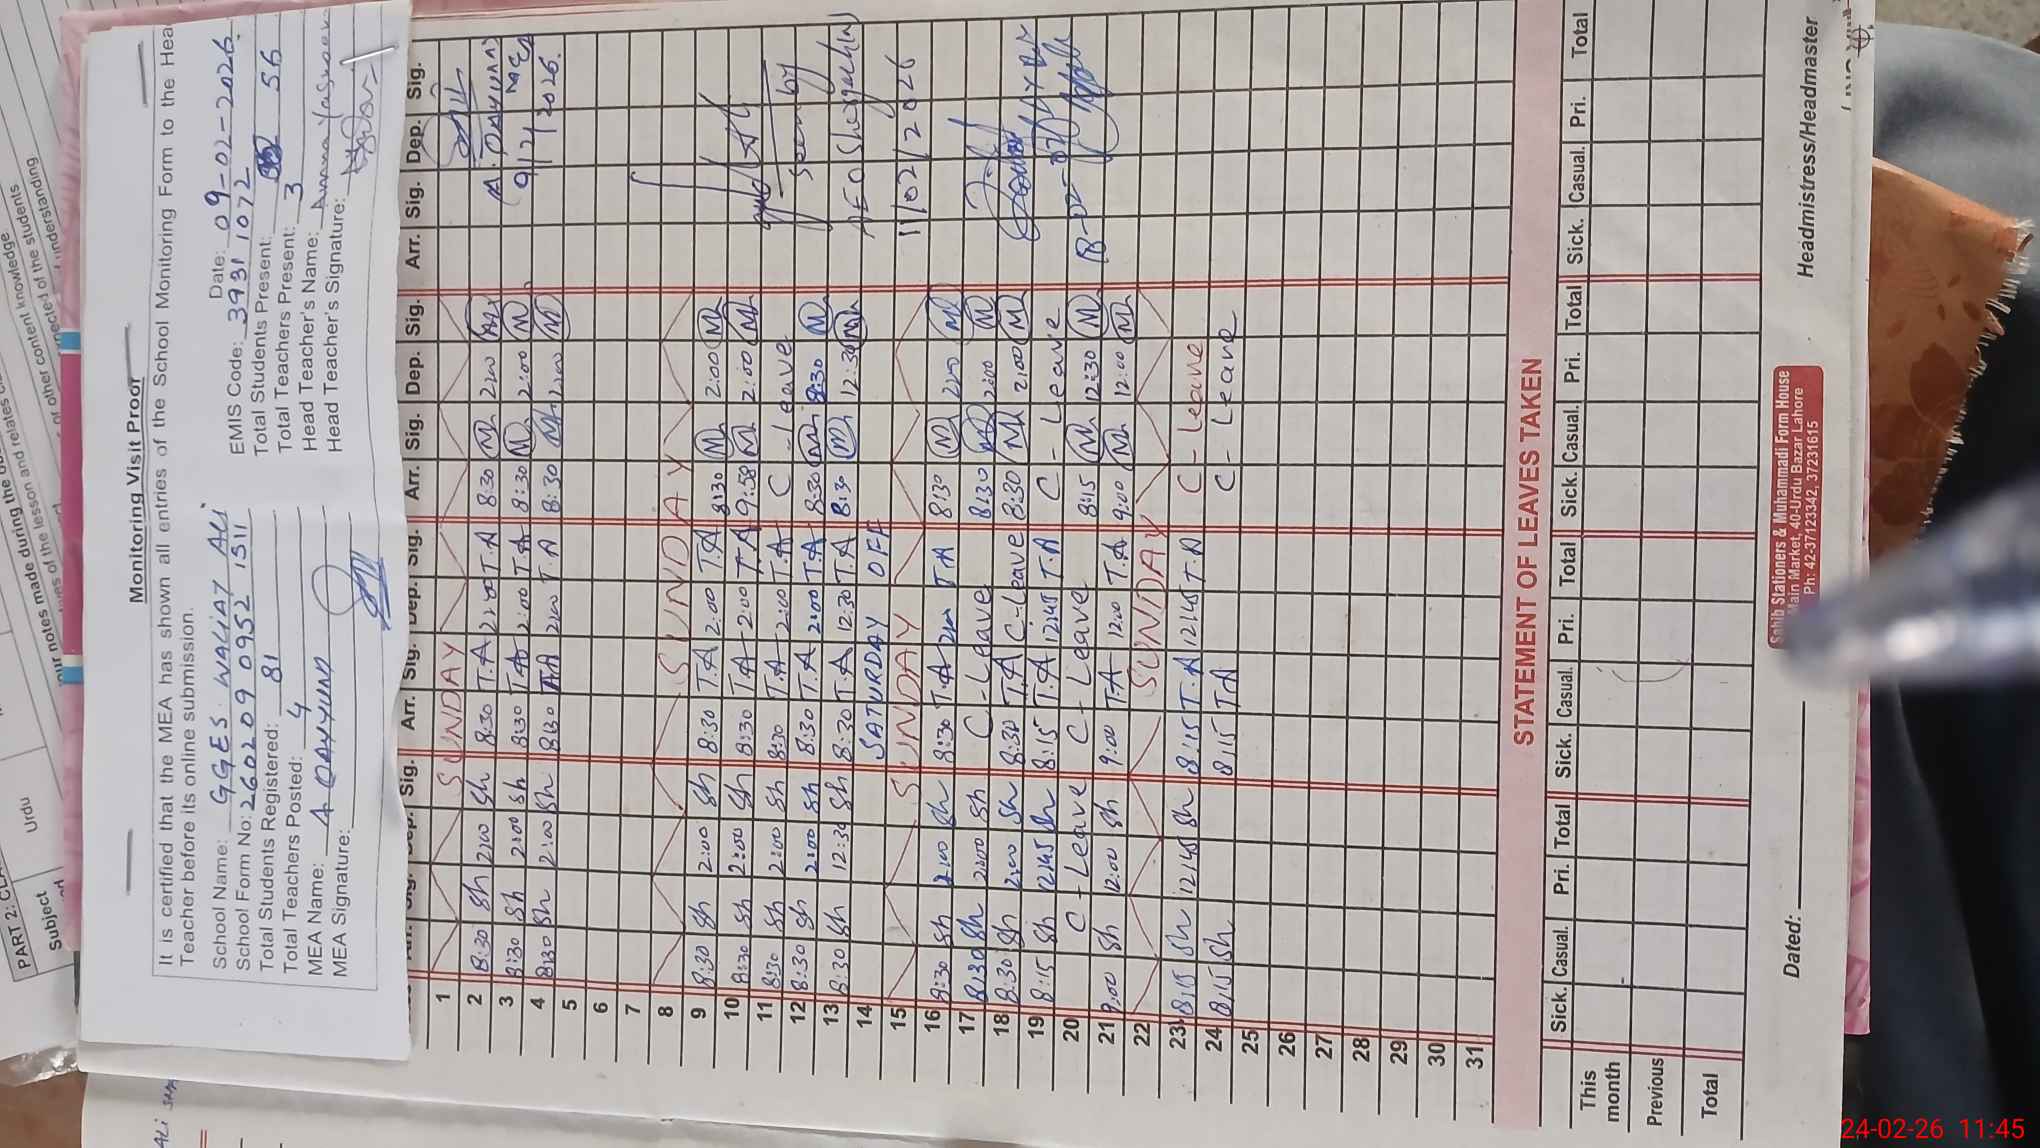 PART 2: CL
Subject
Urdu
our notes made during the
ives of the lesson and relates
or other content knowledge
or other aspected of the students
understanding
Monitoring Visit Proof
It is certified that the MEA has shown all entries of the School Monitoring Form to the Hea
Teacher before its online submission.
School Name: GGES WALiAY ALi
Date: 09-02-2026
School Form No: 260209 0952 1511
EMIS Code: 3931072
Total Students Registered: 81
Total Students Present: 56
Total Teachers Posted: 4
Total Teachers Present: 3
MEA Name: A QAYYUM
Head Teacher's Name:
MEA Signature:
Head Teacher's Signature:
Sig. Arr. Sig. Dep. Sig. Arr. Sig. Dep. Sig. Arr. Sig. Dep. Sig.
1 SUNDAY
2 8:30 Sh 2:00 Sh 8:30 T.A 2:00 T.A 8:30 M 2:00
3 8:30 Sh 2:00 Sh 8:30 T.A 2:00 T.A 8:30 M 2:00 M
4 8:30 Sh 2:00 Sh 8:30 T.A 2:00 T.A 8:30 2:00 M
5
6
7
8 SUNDAY
9 8:30 Sh 2:00 Sh 8:30 T.A 2:00 T.A 8:30 M 2:00 M
10 8:30 Sh 2:00 Sh 8:30 T.A 2:00 T.A 9:58 M 2:00 M
11 8:30 Sh 2:00 Sh 8:30 T.A 2:00 T.A C-Leave
12 8:30 Sh 2:00 Sh 8:30 T.A 2:00 T.A 8:30 M 8:30 M
13 8:30 Sh 12:30 Sh 8:30 T.A 12:30 T.A 8:30 M 12:30 M
14 SATURDAY OFF
15 SUNDAY
16 8:30 Sh 2:00 Sh 8:30 T.A 2:00 T.A 8:30 M 2:00 M
17 8:30 Sh 2:00 Sh C-Leave 8:30 M 2:00 M
18 8:30 Sh 2:00 Sh 8:30 T.A C-Leave 8:30 M 2:00 M
19 8:15 Sh 12:45 Sh 8:15 T.A 12:45 T.A C-Leave
20 C-Leave C-Leave 8:15 M 12:30 M
21 9:00 Sh 12:00 Sh 9:00 T.A 12:00 T.A 9:00 M 12:00 M
22 SUNDAY
23 8:15 Sh 12:45 Sh 8:15 T.A 12:45 T.A C-Leave
24 8:15 Sh 8:15 T.A C-Leave
25
26
27
28
29
30
31
A. QAYYUM
MEA
9/2/2026
AEO
11/02/2026
STATEMENT OF LEAVES TAKEN
Sick. Casual. Pri. Total Sick. Casual. Pri. Total Sick. Casual. Pri. Total Sick. Casual. Pri. Total
This month
Previous
Total
Dated:
Sahib Stationers & Muhammadi Form House
Main Market, 40-Urdu Bazar Lahore
Ph: 42-37123342, 37231615
Headmistress/Headmaster
24-02-26 11:45